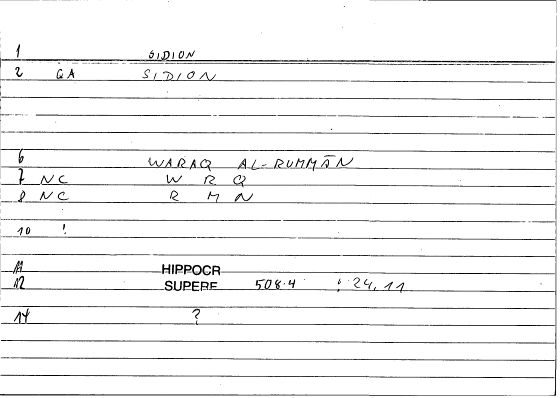 1 SIDION
2 GA SIDION
6 WARAQ AL-RUMMĀN
7 NC W R Q
8 NC R M N
10 !
11 HIPPOCR
12 SUPERF 508.4 : 24,11
14 ?